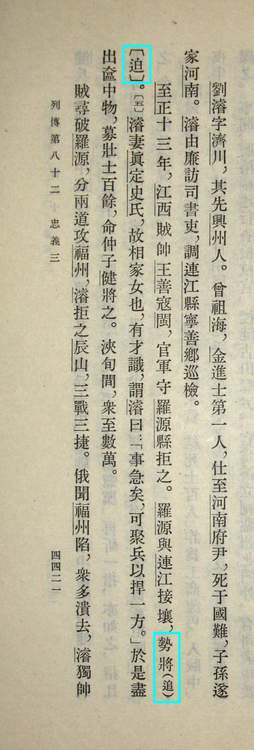 劉濬字濟川，其先興州人。曾祖海，金進士第一人，仕至河南府尹，死于國難，子孫遂
家河南。濬由廉訪司書吏，調連江縣寧善鄉巡檢。
至正十三年，江西賊帥王善寇閩，官軍守羅源縣拒之。羅源與連江接壤，勢將（追）
〔迫〕。〔五〕濬妻眞定史氏，故相家女也，有才識，謂濬曰：「事急矣，可聚兵以捍一方。」於是盡
出奩中物，募壯士百餘，命仲子健將之。浹旬間，衆至數萬。
賊尋破羅源，分兩道攻福州，濬拒之辰山，三戰三捷。俄聞福州陷，衆多潰去，濬獨帥
列傳第八十二　忠義三
四四二一